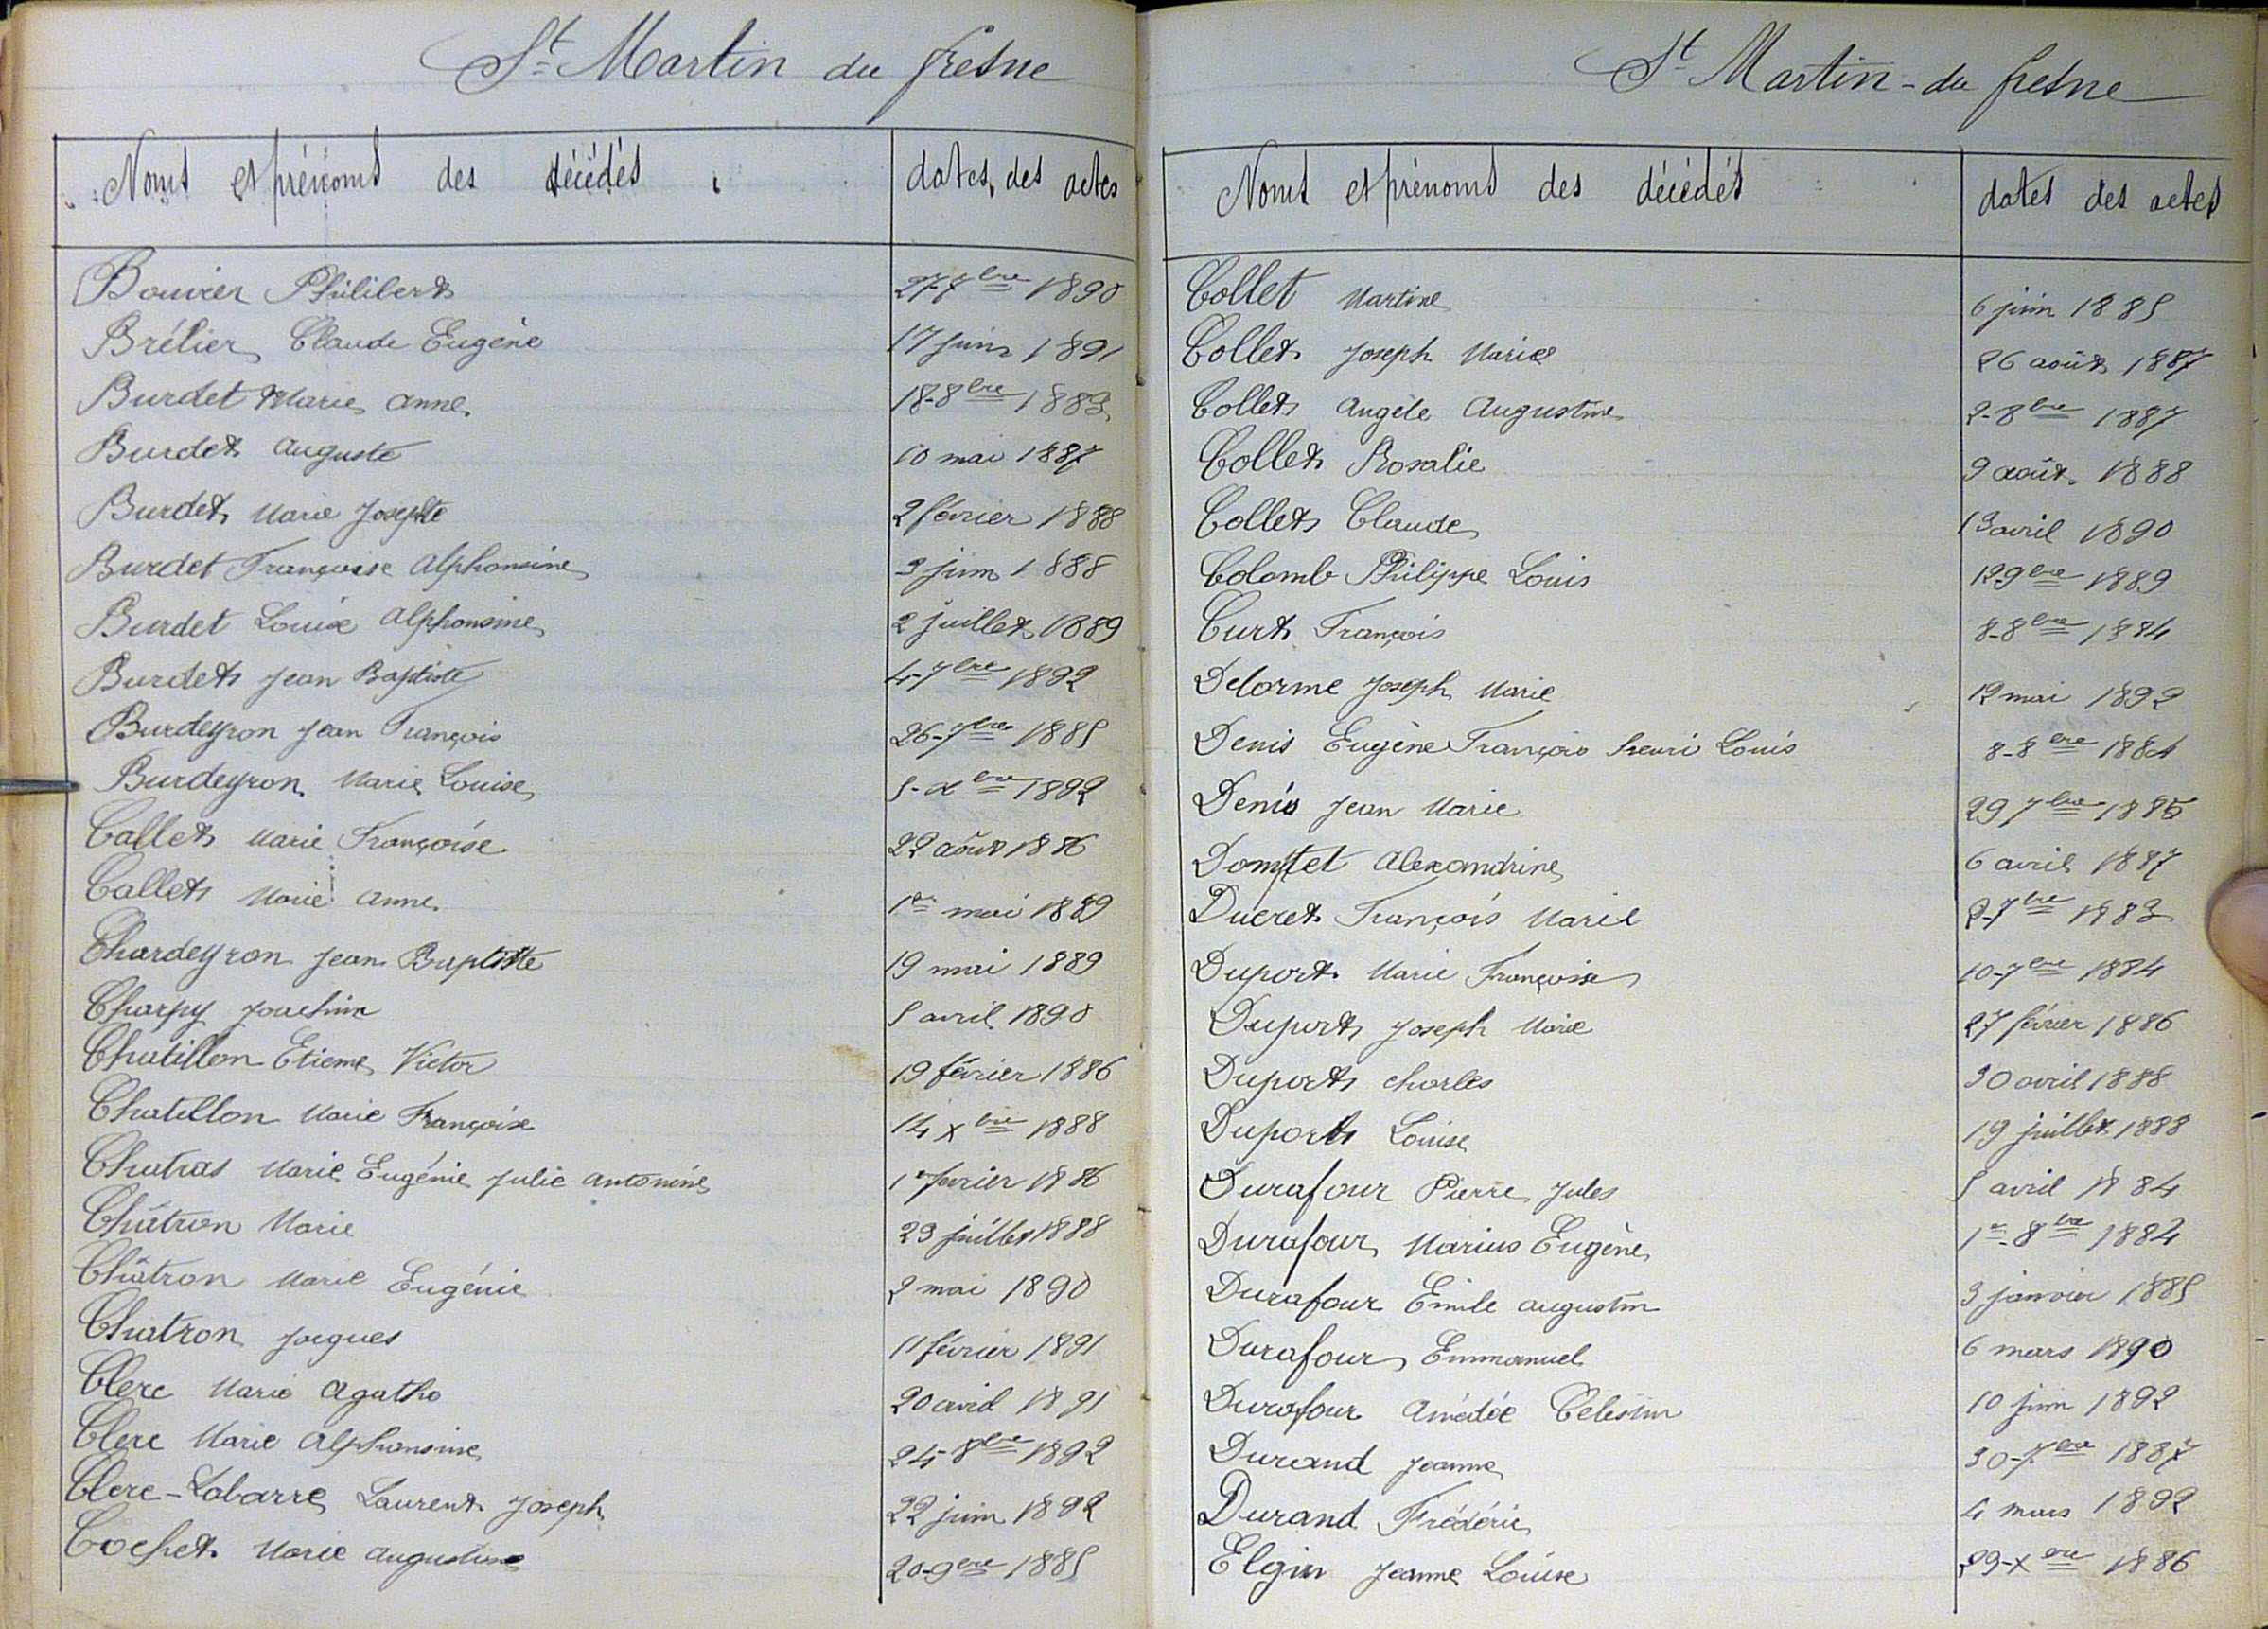 St Martin du fresne
Noms et prénoms des décédés dates des actes
Bouvier Philibert 27-7bre 1890
Brélier Claude Eugène 17 juin 1891
Burdet Marie Anne 18-8bre 1883
Burdet Auguste 10 mai 1887
Burdet Marie Josephte 2 février 1888
Burdet Françoise Alphonsine 3 juin 1888
Burdet Louise Alphonsine 2 juillet 1889
Burdet Jean Baptiste 4-7bre 1892
Burdeyron Jean François 26-7bre 1885
Burdeyron Marie Louise 5-xbre 1892
Callet Marie Françoise 22 août 1886
Callet Marie Anne 1er mai 1889
Chardeyron Jean Baptiste 19 mai 1889
Charpy Joachim 5 avril 1890
Chatillon Etienne Victor 19 février 1886
Chatillon Marie Françoise 14 xbre 1888
Chatras Marie Eugénie Julie Antonine 1er février 1886
Châtron Marie 23 juillet 1888
Châtron Marie Eugénie 2 mai 1890
Chatron Jacques 11 février 1891
Clerc Marie Agathe 20 avril 1891
Clerc Marie Alphonsine 24-8bre 1892
Clerc-Labarre Laurent Joseph 22 juin 1892
Cochet Marie Augustine 20-9bre 1885
St Martin-du fresne
Noms et prénoms des décédés dates des actes
Collet Martine 6 juin 1885
Collet Joseph Marie 26 août 1887
Collet Angèle Augustine 2-8bre 1887
Collet Rosalie 9 août 1888
Collet Claude 13 avril 1890
Colomb Philippe Louis 12 9bre 1889
Curt François 8-8bre 1884
Delorme Joseph Marie 12 mai 1892
Denis Eugène François henri Louis 8-8bre 1884
Denis Jean Marie 29 7bre 1885
Domtet Alexandrine 6 avril 1887
Ducret François Marie 2-7bre 1883
Duport Marie Françoise 10-7bre 1884
Duport Joseph Marie 27 février 1886
Duport Charles 30 avril 1888
Duport Louise 19 juillet 1888
Durafour Pierre Jules 5 avril 1884
Durafour Marius Eugène 1er-8bre 1884
Durafour Emile Augustin 3 janvier 1885
Durafour Emmanuel 6 mars 1890
Durafour Amédée Célestin 10 juin 1892
Durand Jeanne 30-7bre 1887
Durand Frédéric 4 mars 1892
Elgin Jeanne Louise 29-xbre 1886